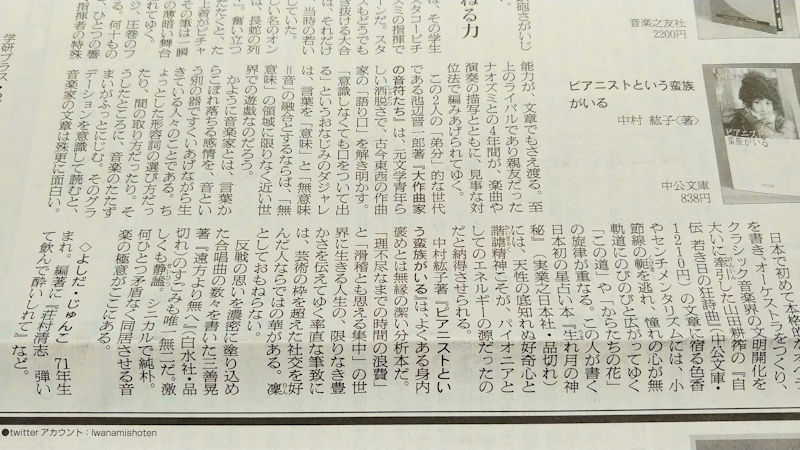 音楽之友社
2200円
ピアニストという蛮族
がいる
中村 紘子〈著〉
中公文庫
838円
ねる力
能力が、文章でもさえ渡る。至
上のライバルであり親友だった
ナオズミとの4年間が、楽曲や
演奏の描写とともに、見事な対
位法で編みあげられてゆく。
この2人の「弟分」的な世代
である池辺晋一郎著『大作曲家
の音符たち』は、元文学青年ら
しい洒脱さで、古今東西の作曲
家の「語り口」を解き明かす。
「意識しなくても口をついて出
る」というおなじみのダジャレ
は、言葉を「意味」と「無意味
＝音」の融合とするならば、「無
意味」の領域に限りなく近い世
界での遊戯なのだろう。
かように音楽家とは、言葉か
らこぼれ落ちる感情を、音とい
う別の器ですくいあげながら生
きている人々のことである。ち
ょっとした形容詞の選び方だっ
たり、間の取り方だったり。そ
うしたところに、音楽のたたず
まいがふっとにじむ。そのグラ
デーションを意識して読むと、
音楽家の文章は殊更に面白い。
日本で初めて本格的
を書き、オーケストラをつくり、
クラシック音楽界の文明開化を
大いに牽引した山田耕筰の『自
伝 若き日の狂詩曲』（中公文庫・
1210円）の文章に宿る色香
やセンチメンタリズムには、小
節線の軛を逃れ、憧れの心が無
軌道にのびのびと広がってゆく
「この道」や「からたちの花」
の旋律が重なる。この人が書く
日本初の星占い本『生れ月の神
秘』（実業之日本社・品切れ）
には、天性の底知れぬ好奇心と
諧謔精神こそが、パイオニアと
してのエネルギーの源だったの
だと納得させられる。
中村紘子著『ピアニストとい
う蛮族がいる』は、よくある身内
褒めとは無縁の潔い分析本だ。
「理不尽なまでの時間の浪費」
と「滑稽とも思える集中」の世
界に生きる人生の、限りなき豊
かさを伝えてゆく率直な筆致に
は、芸術の枠を超えた社交を好
んだ人ならではの華がある。凜
としておもねらない。
反戦の思いを濃密に塗り込め
た合唱曲の数々を書いた三善晃
著『遠方より無へ』（白水社・品
切れ）のすごみも唯一無二だ。激
しくも静謐。シニカルで純朴。
何ひとつ矛盾なく同居させる音
楽の極意がここにある。
◇よしだ・じゅんこ 71年生
まれ。編著に『荘村清志 弾い
て飲んで酔いしれて』など。
●twitterアカウント：Iwanamishoten